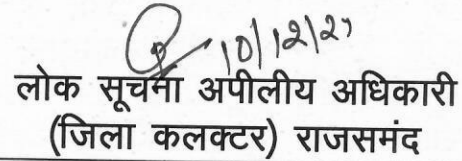 10/12/21
लोक सूचना अपीलीय अधिकारी
(जिला कलक्टर) राजसमंद